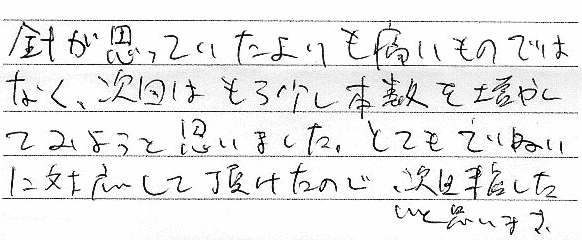 針が思っていたよりも痛いものでは
なく、次回はもう少し本数を増やし
てみようと思いました。とてもていねい
に対応して頂けたので、次回も指名した
いと思います。